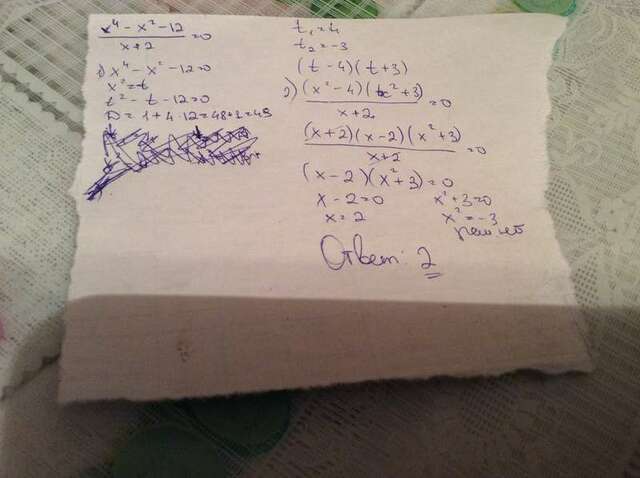 x⁴ - x² - 12 / x+2 = 0
1) x⁴ - x² - 12 = 0
x² = t
t² - t - 12 = 0
D = 1 + 4 · 12 = 48 + 1 = 49
t₁ = 4
t₂ = -3
(t - 4)(t + 3)
2) (x² - 4)(x² + 3) / x+2 = 0
(x+2)(x-2)(x²+3) / x+2 = 0
(x - 2)(x² + 3) = 0
x - 2 = 0 x² + 3 = 0
x = 2 x² = -3
реш нет
Ответ: 2